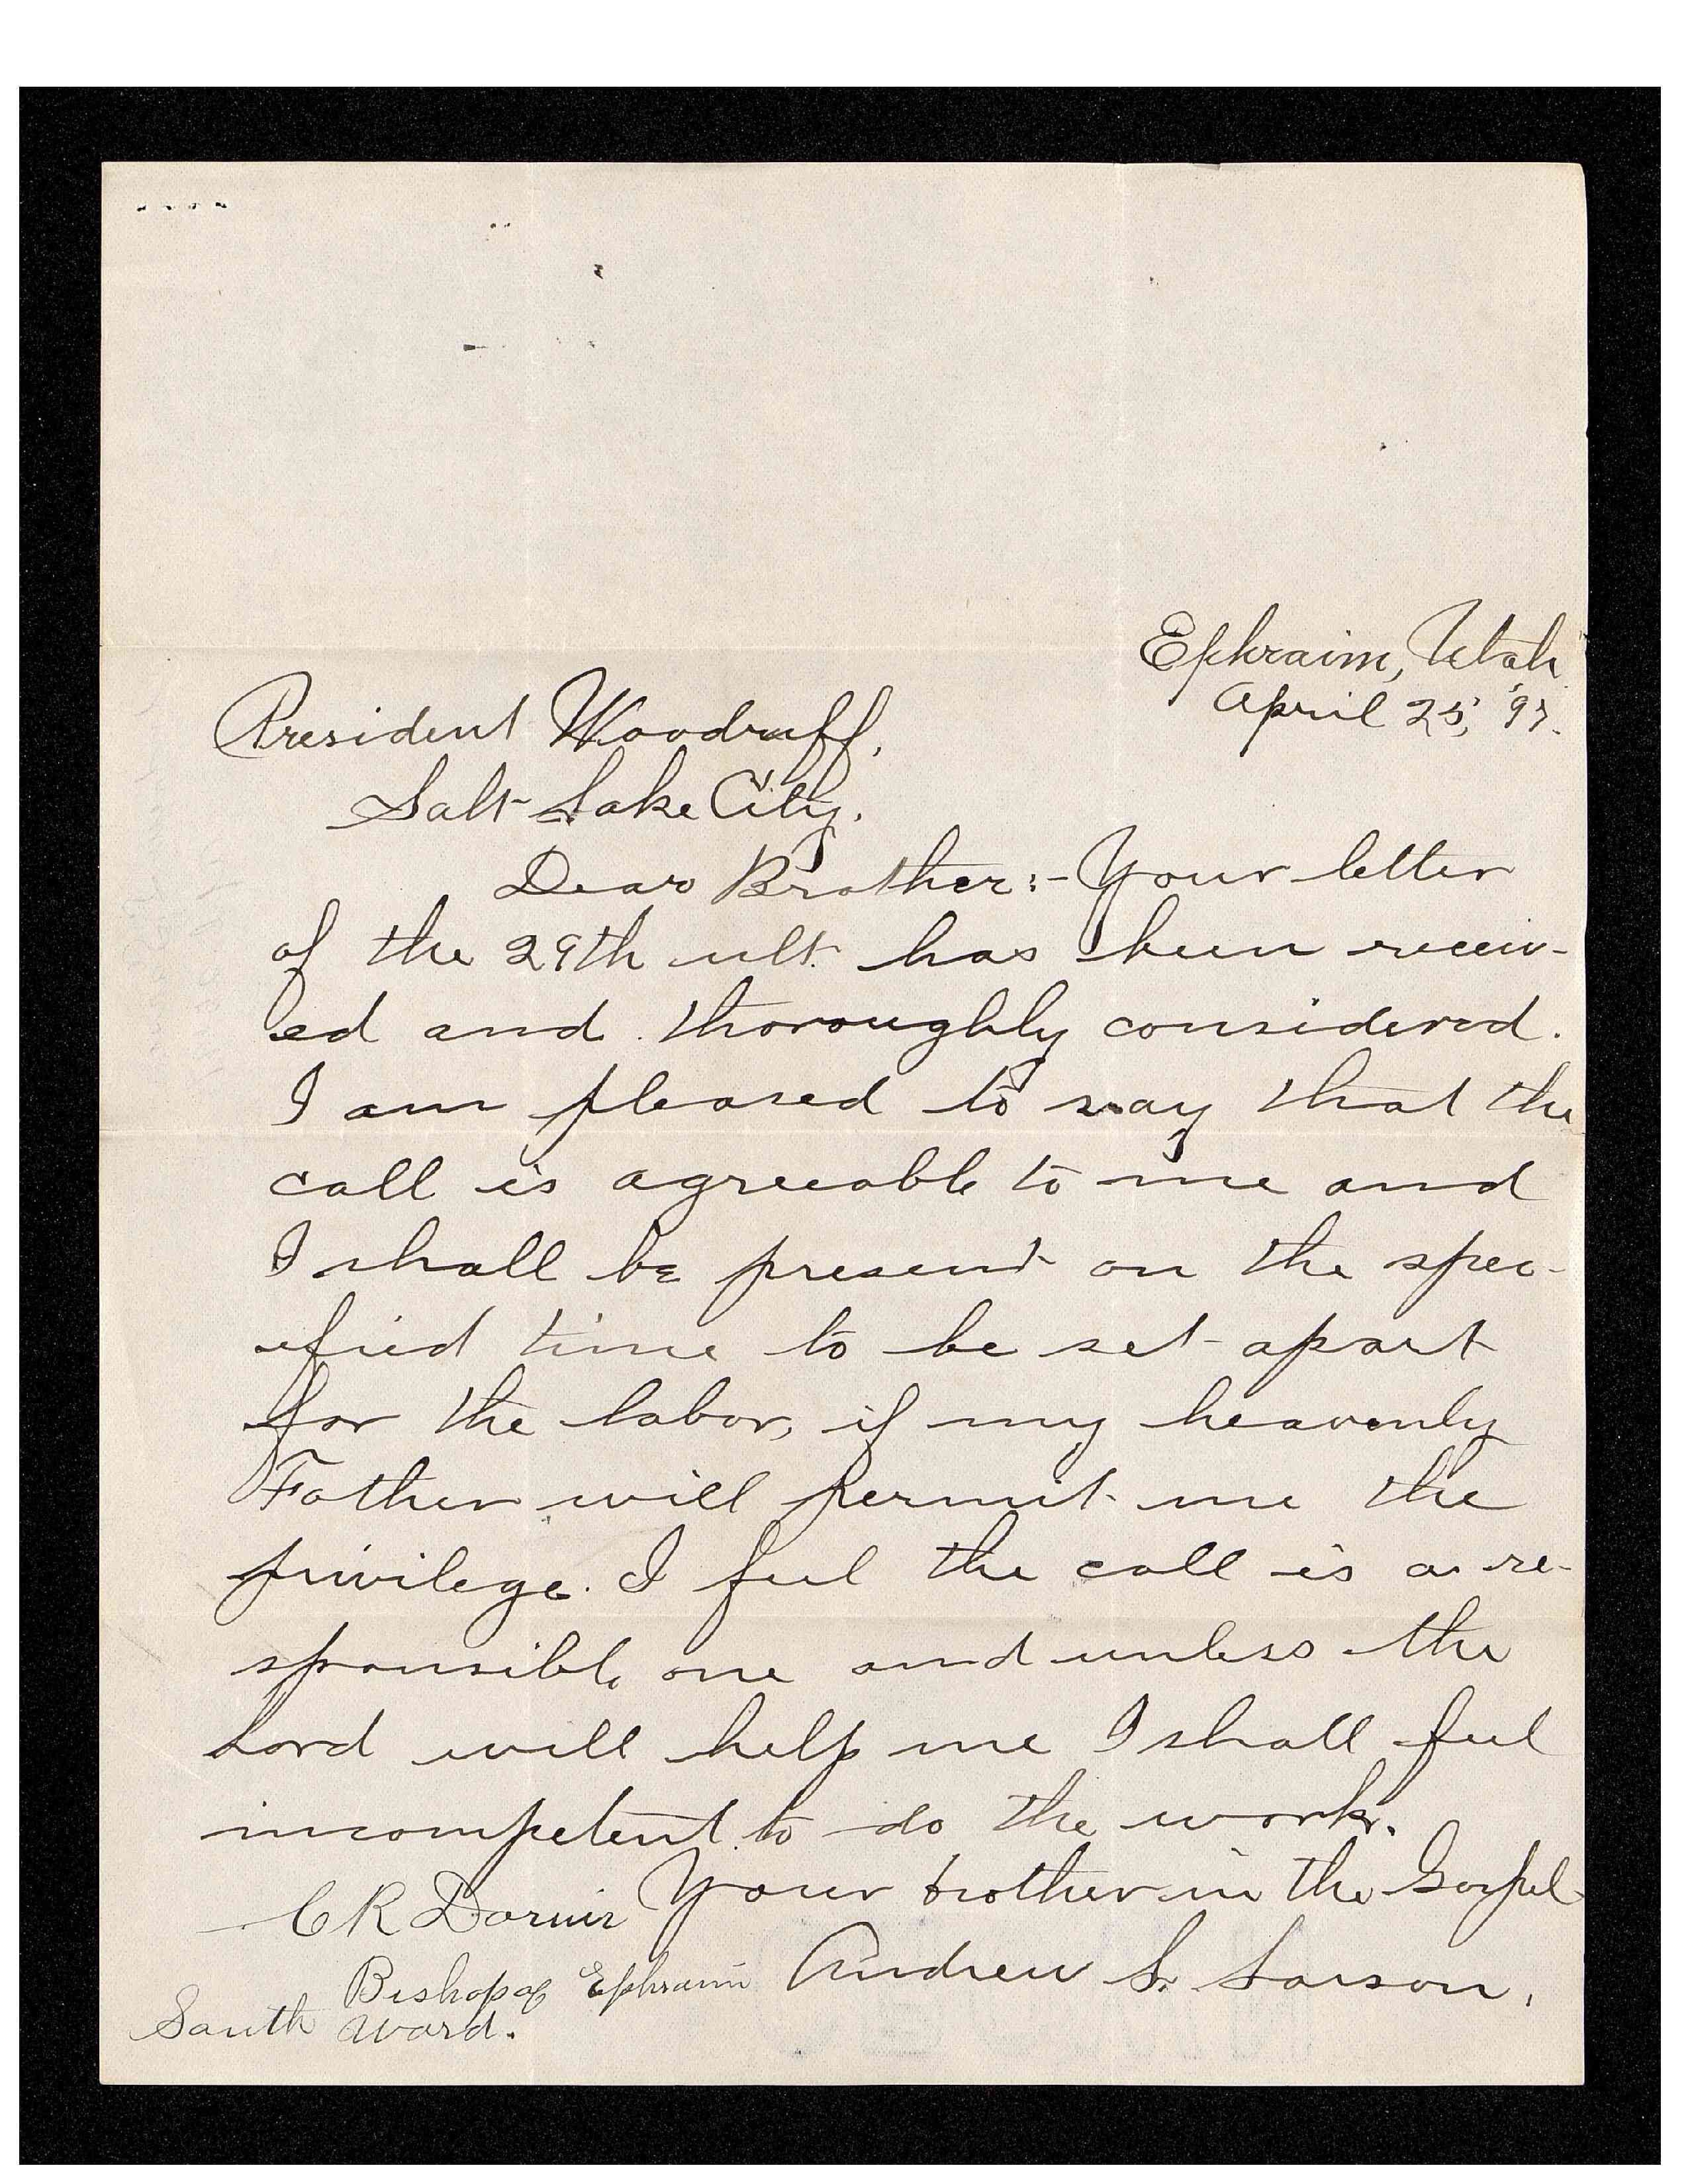 Ephraim, Utah
April 25, '97.
President Woodruff,
Salt Lake City.
Dear Brother:- Your letter
of the 29th ult. has been receiv-
ed and thoroughly considered.
I am pleased to say that the
call is agreeable to me and
I shall be present on the spec-
ified time to be set apart
for the labor, if my heavenly
Father will permit me the
privilege. I feel the call is a re-
sponsible one and unless the
Lord will help me I shall feel
incompetent to do the work.
Your brother in the Gospel
Andrew S. Larson.
C R Dorius
Bishop of Ephraim
South Ward.